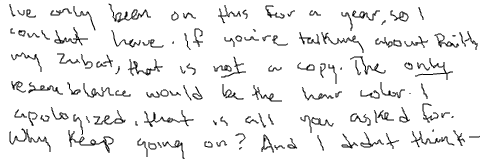 Ive only been on this for a year, so I
couldnt have. If you're talking about Raith
my Zubat, that is not a copy. The only
resemblance would be the hair color. I
apologized, that is all you asked for.
Why keep going on? And I didnt think-